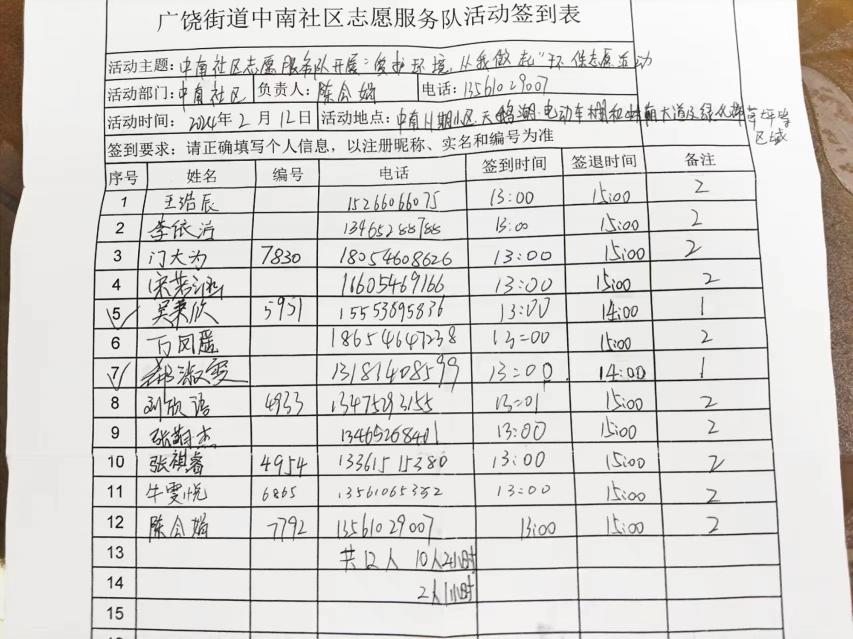 广饶街道中南社区志愿服务队活动签到表
活动主题：中南社区志愿服务队开展"爱护环境，从我做起"环保志愿活动
活动部门：中南社区 负责人：陈会娟 电话：13561029007
活动时间：2024年2月12日 活动地点：中南 期小区 天鹅湖 电动车棚和 南大道及绿化带草坪等
区域
签到要求：请正确填写个人信息，以注册昵称、实名和编号为准
序号 姓名 编号 电话 签到时间 签退时间 备注
1 王浩辰 15266066075 13:00 15:00 2
2 李依洁 13465288788 13:00 15:00 2
3 门大为 7830 18054608626 13:00 15:00 2
4 宋 涵 16605469166 13:00 15:00 2
5 吴 欣 5951 15553695836 13:00 14:00 1
6 万凤瑶 18654647238 13:00 15:00 2
7 淑雯 13181408599 13:00 14:00 1
8 刘欣语 4933 13475293155 13:01 15:00 2
9 张 杰 13465268401 13:00 15:00 2
10 张祺睿 4954 13361515380 13:00 15:00 2
11 牛雯悦 6865 13561065352 13:00 15:00 2
12 陈会娟 7792 13561029007 13:00 15:00 2
13 共12人 10人2小时
14 2人1小时
15